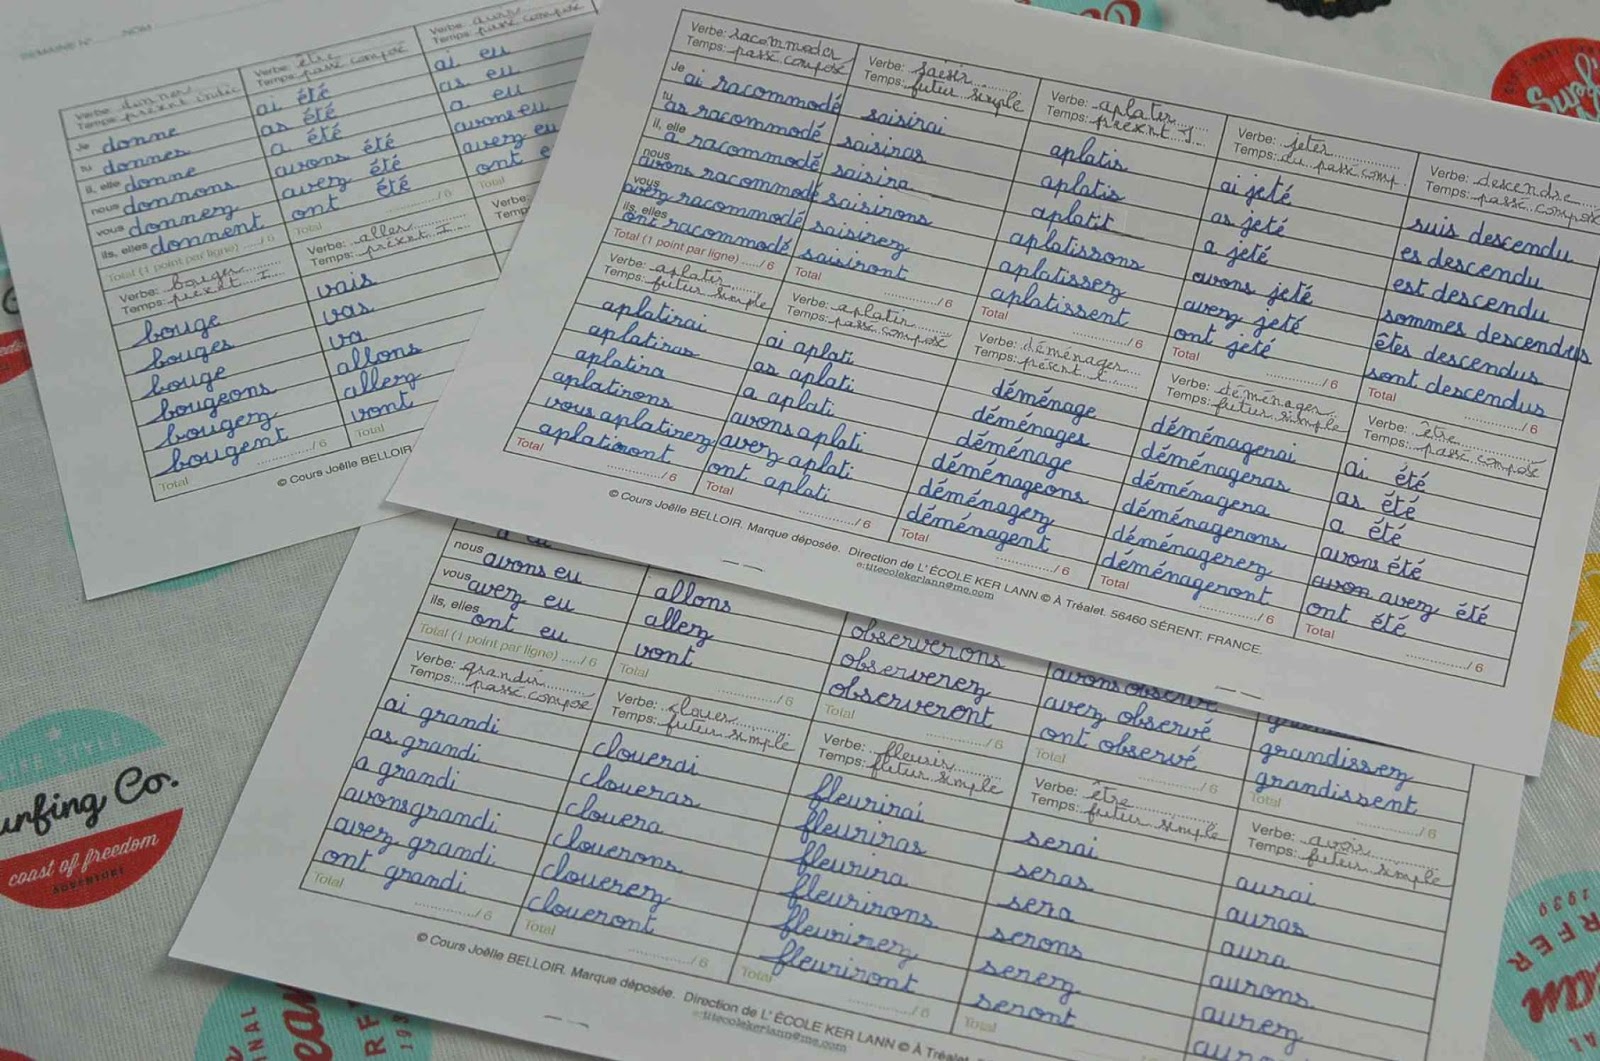 SEMAINE N° NOM
Verbe: donner
Temps: présent indic
Je donne
tu donnes
il, elle donne
nous donnons
vous donnez
ils, elles donnent
Total (1 point par ligne) ....../ 6
Verbe: être
Temps: passé composé
ai été
as été
a été
avons été
avez été
ont été
Total / 6
Verbe: avoir
Temps: passé composé
ai eu
as eu
a eu
avons eu
avez eu
ont e
Total
Verbe: bouger
Temps: présent I
bouge
bouges
bouge
bougeons
bougez
bougent
Total / 6
Verbe: aller
Temps: présent I
vais
vas
va
allons
allez
vont
Total
Verbe:
Temp
© Cours Joëlle BELLOIR
Verbe: racommoder
Temps: passé composé
Je ai racommodé
tu as racommodé
il, elle a racommodé
nous avons racommodé
vous avez racommodé
ils, elles ont racommodé
Total (1 point par ligne) ....../ 6
Verbe: saisir
Temps: futur simple
saisirai
saisiras
saisira
saisirons
saisirez
saisiront
Total / 6
Verbe: aplatir
Temps: présent I
aplatis
aplatis
aplatit
aplatissons
aplatissez
aplatissent
Total / 6
Verbe: jeter
Temps: du passé comp.
ai jeté
as jeté
a jeté
avons jeté
avez jeté
ont jeté
Total / 6
Verbe: descendre
Temps: passé composé
suis descendu
es descendu
est descendu
sommes descendus
êtes descendus
sont descendus
Total / 6
Verbe: aplatir
Temps: futur simple
aplatirai
aplatiras
aplatira
aplatirons
vous aplatirez
aplatiront
Total / 6
Verbe: aplatir
Temps: passé composé
ai aplati
as aplati
a aplati
avons aplati
avez aplati
ont aplati
Total / 6
Verbe: déménager
Temps: présent I
déménage
déménages
déménage
déménageons
déménagez
déménagent
Total / 6
Verbe: déménager
Temps: futur simple
déménagerai
déménageras
déménagera
déménagerons
déménagerez
déménageront
Total / 6
Verbe: être
Temps: passé composé
ai été
as été
a été
avons été
avez été
ont été
Total / 6
© Cours Joëlle BELLOIR. Marque déposée. Direction de L' ÉCOLE KER LANN © À Tréalet. 56460 SÉRENT. FRANCE.
e:titecolekerlann@me.com
nous avons eu
vous avez eu
ils, elles ont eu
Total (1 point par ligne) ....../ 6
allons
allez
vont
Total / 6
observerons
observerez
observeront
Total / 6
avons observé
avez observé
ont observé
Total / 6
grandissez
grandissent
Total / 6
Verbe: grandir
Temps: passé composé
ai grandi
as grandi
a grandi
avons grandi
avez grandi
ont grandi
Total / 6
Verbe: clouer
Temps: futur simple
clouerai
cloueras
clouera
clouerons
clouerez
cloueront
Total / 6
Verbe: fleurir
Temps: futur simple
fleurirai
fleuriras
fleurira
fleurirons
fleurirez
fleuriront
Total / 6
Verbe: être
Temps: futur simple
serai
seras
sera
serons
serez
seront
Total
Verbe: avoir
Temps: futur simple
aurai
auras
aura
aurons
aurez
© Cours Joëlle BELLOIR. Marque déposée. Direction de L' ÉCOLE KER LANN © À Tréalet
e:titecolekerlann@me.com
STYLE
urfing Co.
coast of freedom
ADVENTURE
1939
RFER